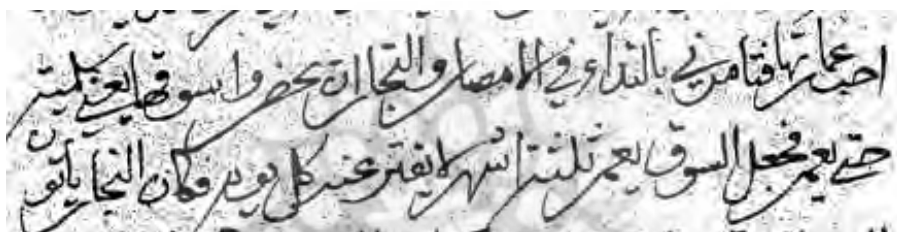 احب عمارتها فتامرني بالنداء في الامصار والتجار ان يحضروا سوقها يعني كليتر
حتى يعمر فجعل السوق يعمر ثلثة اشهر لا يفتر عند كل يوم فكان التجار ياتون